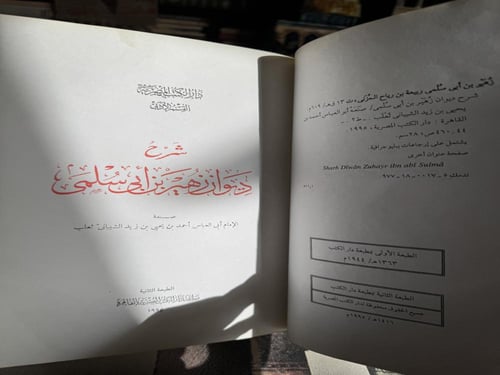 دار الكتب المصرية
القسم الأدبي
شرح
ديوان زهير بن أبي سلمى
صنعة
الإمام أبي العباس أحمد بن يحيى بن زيد الشيباني ثعلب
الطبعة الثانية
زهير بن أبى سلمى ربيعة بن رياح المزنى
شرح ديوان زهير بن أبى سلمى / صنعة أبو العباس أحمد بن
يحيى بن زيد الشيبانى ثعلب . - ط٢ . -
القاهرة : دار الكتب المصرية ، ١٩٩٥
يشتمل على إرجاعات ببليوجرافية
صفحة عنوان أخرى
Sharh Dīwān Zuhayr ibn abī Sulmā
تدمك ٥ - ٠٠١٧ - ١٨ - ٩٧٧
الطبعة الأولى بمطبعة دار الكتب
١٣٦٣هـ / ١٩٤٤م
الطبعة الثانية بمطبعة دار الكتب
جميع الحقوق محفوظة لدار الكتب المصرية
١٤١٦هـ / ١٩٩٥م